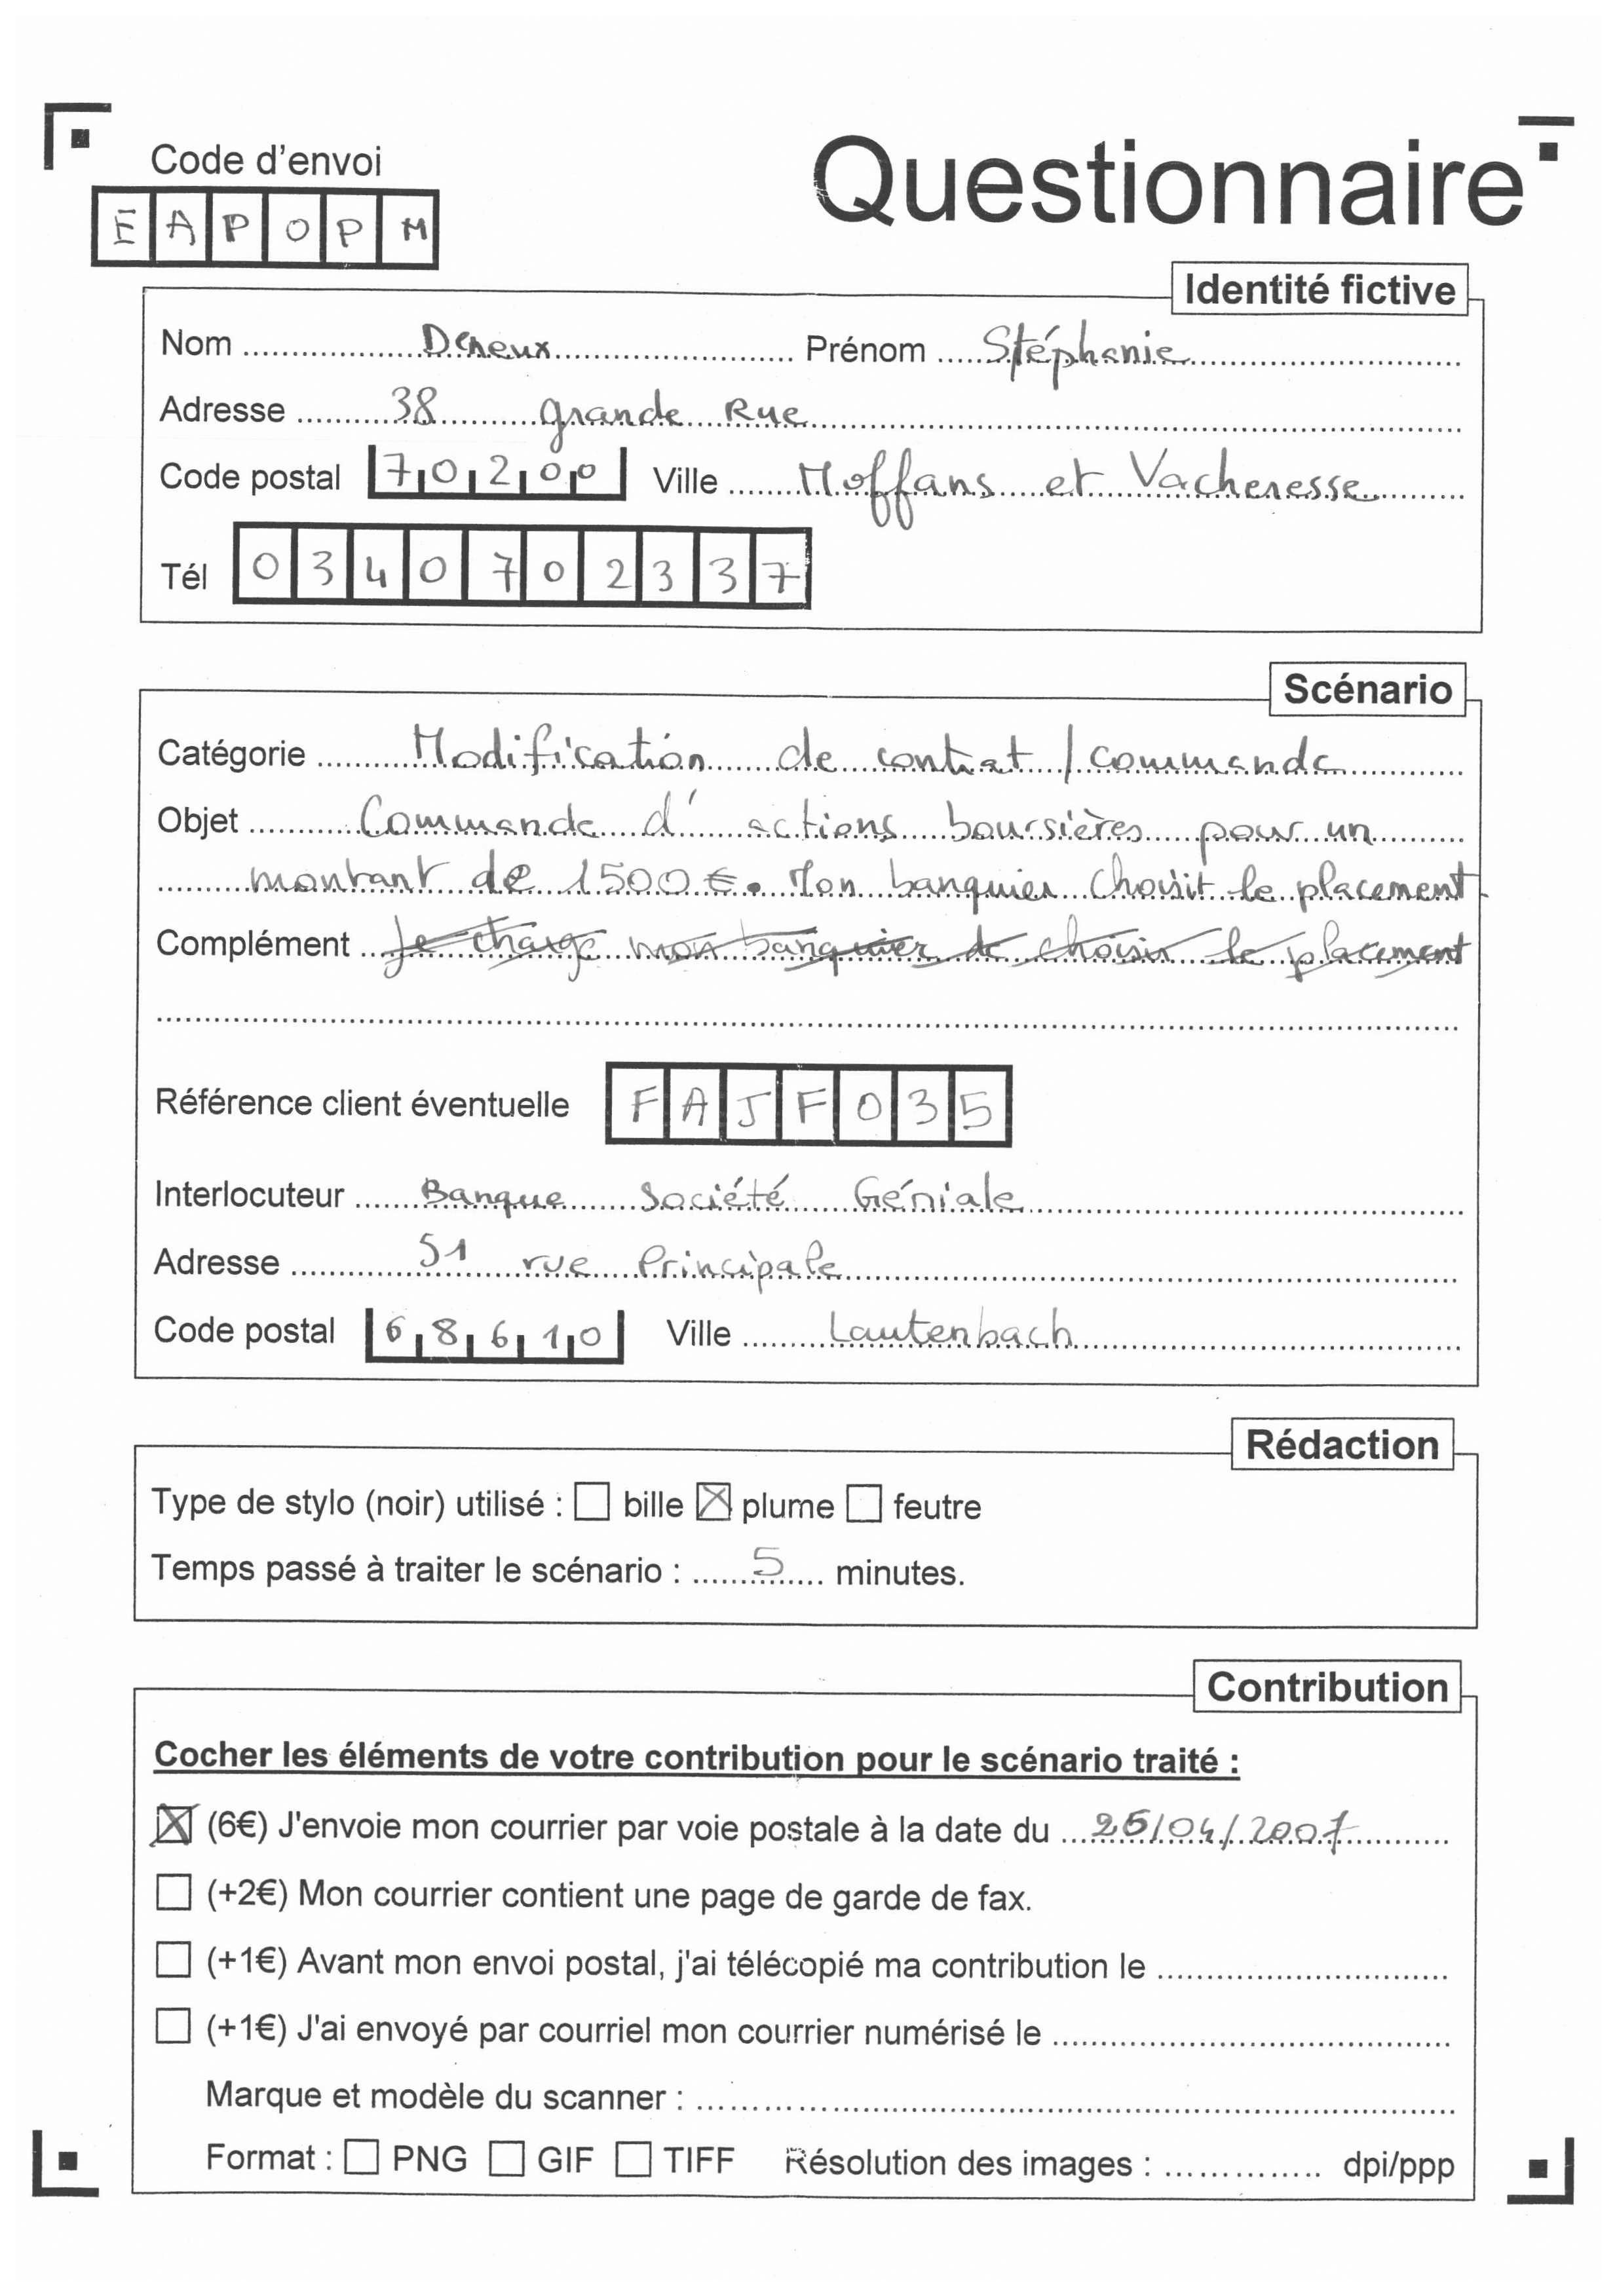 Code d'envoi
EAPOPM
Questionnaire
Identité fictive
Nom Deneux Prénom Stéphanie
Adresse 38 grande Rue
Code postal 70200 Ville Moffans et Vacheresse
Tél 0340702337
Scénario
Catégorie Modification de contrat / commande
Objet Commande d'actions boursières pour un
montant de 1500€. Mon banquier choisit le placement.
Complément Je charge mon banquier de choisir le placement
Référence client éventuelle FAJF035
Interlocuteur Banque Société Géniale
Adresse 51 rue Principale
Code postal 68610 Ville Lautenbach
Rédaction
Type de stylo (noir) utilisé : bille plume feutre
Temps passé à traiter le scénario : 5 minutes.
Contribution
Cocher les éléments de votre contribution pour le scénario traité :
(6€) J'envoie mon courrier par voie postale à la date du 25/04/2007
(+2€) Mon courrier contient une page de garde de fax.
(+1€) Avant mon envoi postal, j'ai télécopié ma contribution le
(+1€) J'ai envoyé par courriel mon courrier numérisé le
Marque et modèle du scanner :
Format : PNG GIF TIFF Résolution des images : dpi/ppp